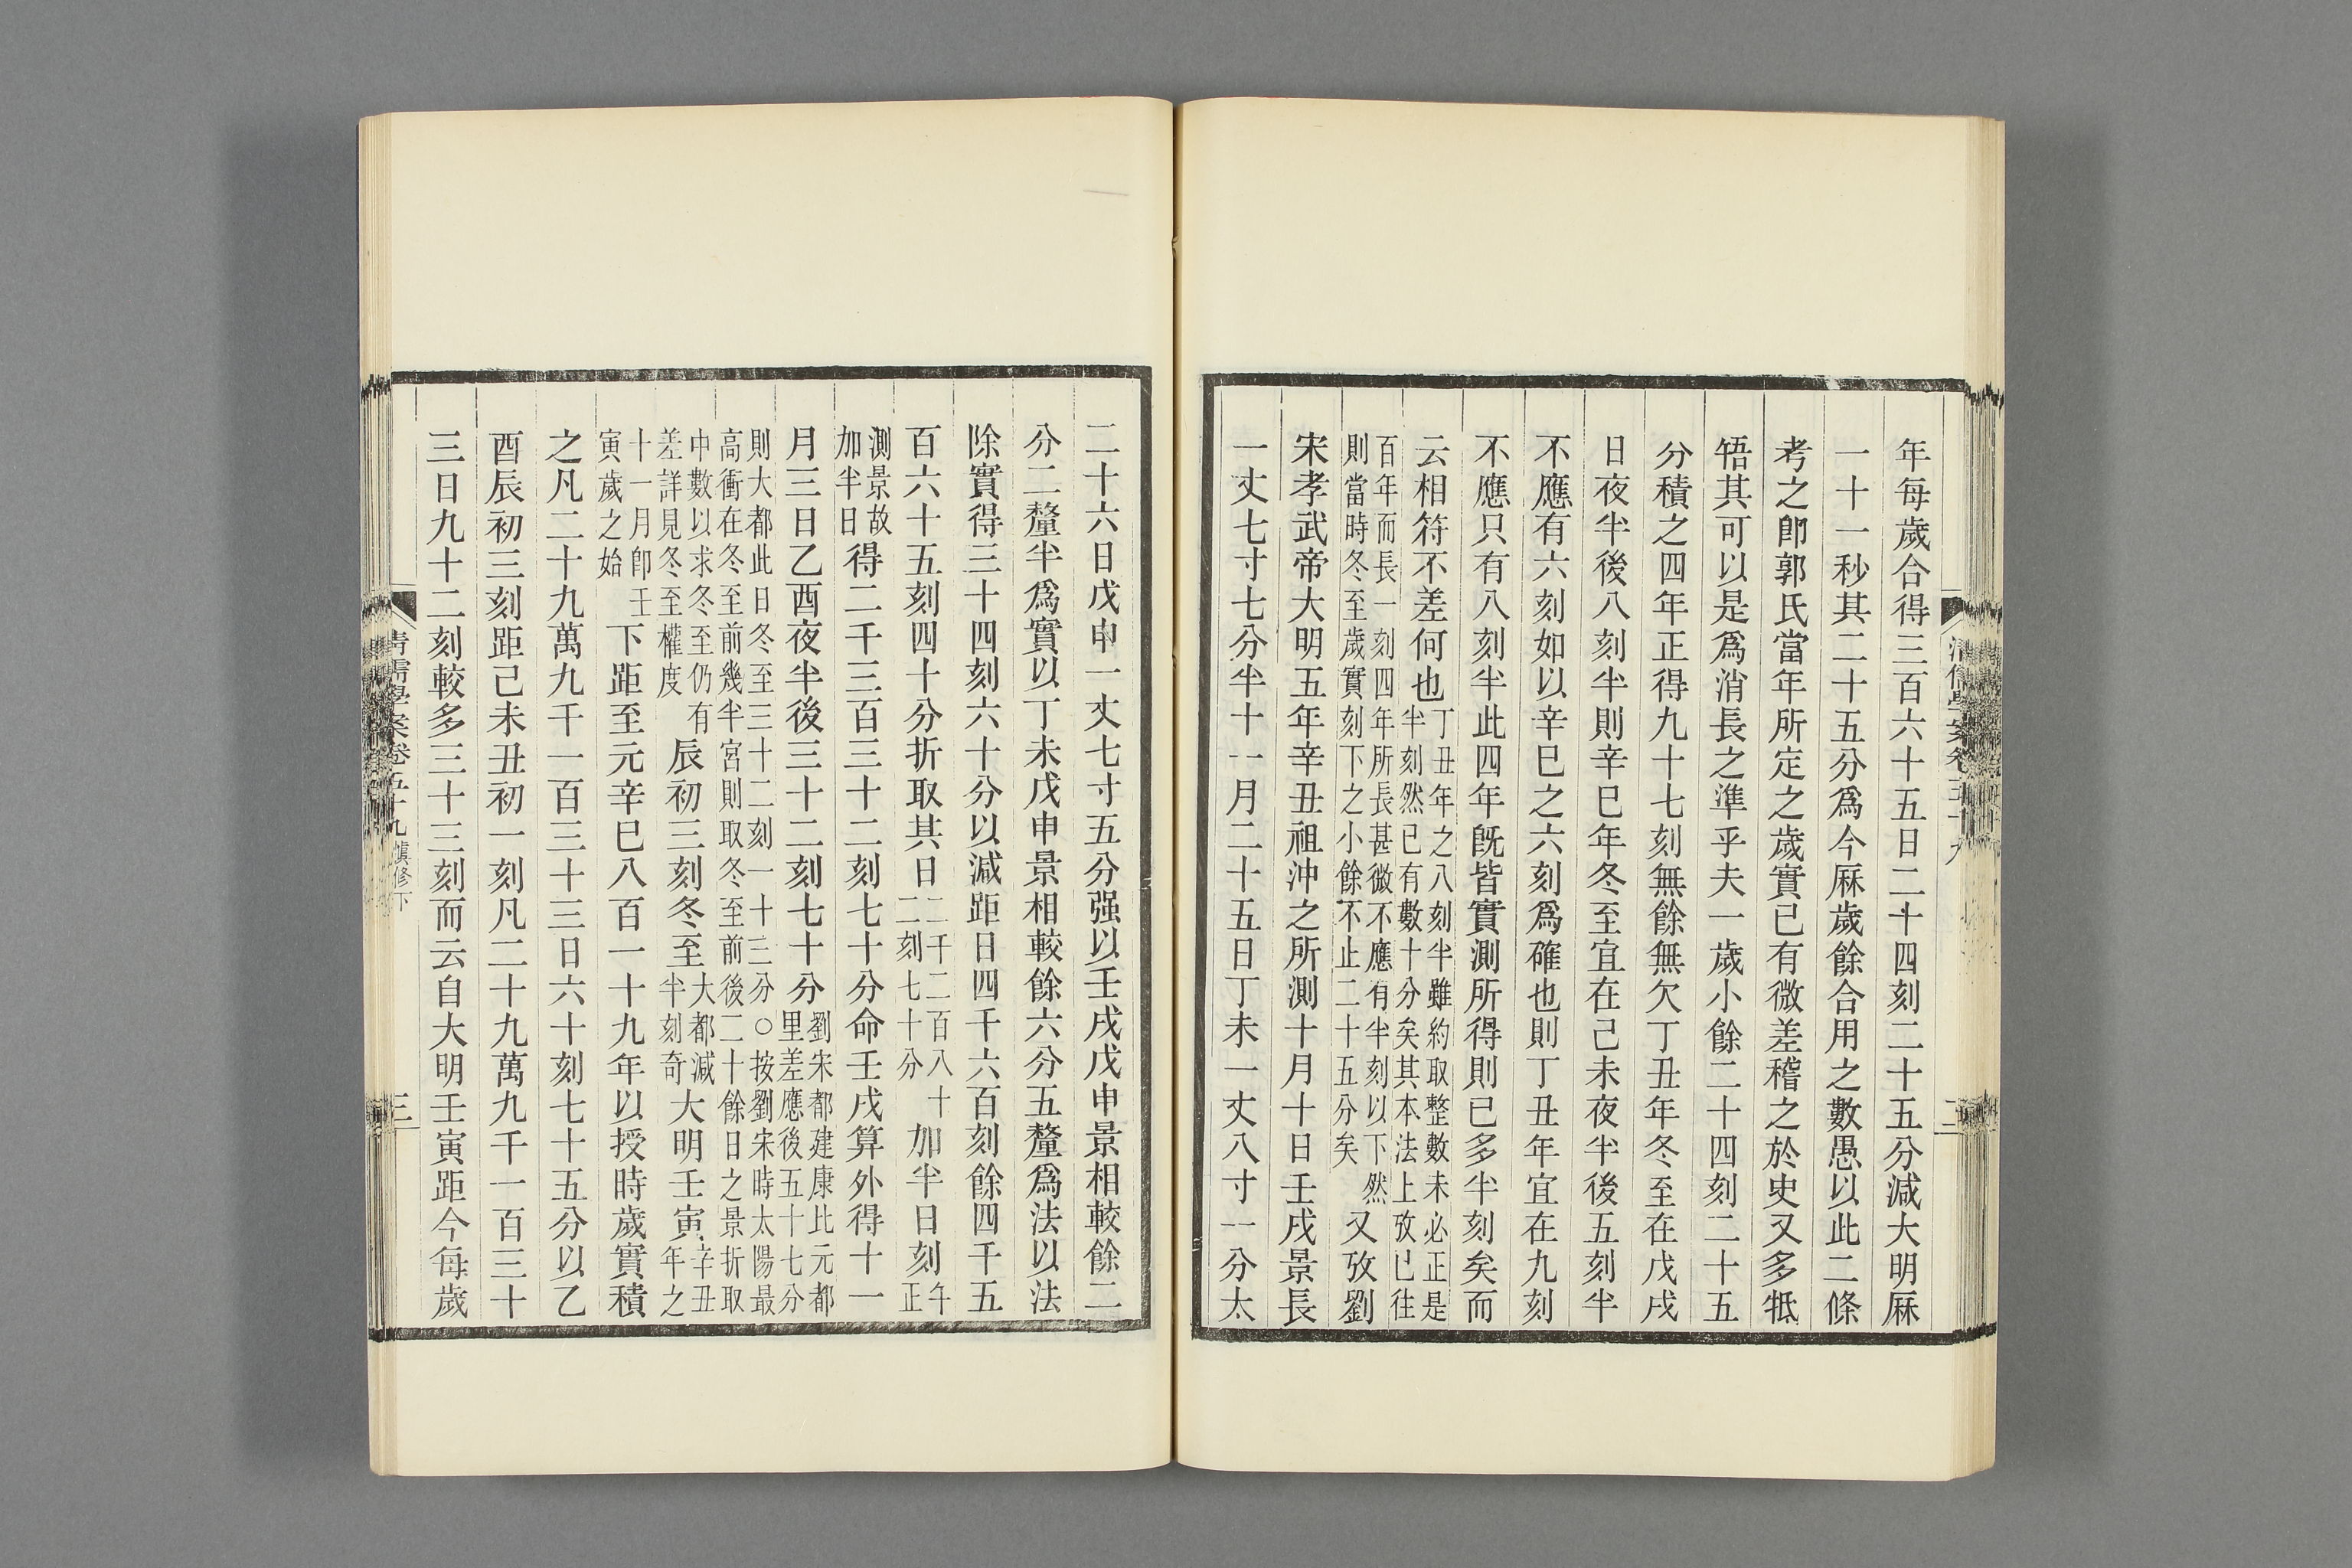 年每歲合得三百六十五日二十四刻二十五分減大明厤
一十一秒其二十五分爲今厤歲餘合用之數愚以此二條
考之卽郭氏當年所定之歲實已有微差稽之於史又多牴
牾其可以是爲消長之準乎夫一歲小餘二十四刻二十五
分積之四年正得九十七刻無餘無欠丁丑年冬至在戊戌
日夜半後八刻半則辛巳年冬至宜在己未夜半後五刻半
不應有六刻如以辛巳之六刻爲確也則丁丑年宜在九刻
不應只有八刻半此四年旣皆實測所得則已多半刻矣而
云相符不差何也
丁丑年之八刻半雖約取整數未必正是
半刻然已有數十分矣其本法上攷已往
百年而長一刻四年所長甚微不應有半刻以下然
則當時冬至歲實刻下之小餘不止二十五分矣
又攷劉
宋孝武帝大明五年辛丑祖沖之所測十月十日壬戌景長
一丈七寸七分半十一月二十五日丁未一丈八寸一分太
二十六日戊申一丈七寸五分强以壬戌戊申景相較餘二
分二釐半爲實以丁未戊申景相較餘六分五釐爲法以法
除實得三十四刻六十分以減距日四千六百刻餘四千五
百六十五刻四十分折取其日
二千二百八十
二刻七十分
加半日刻
午正
測景故
加半日
得二千三百三十二刻七十分命壬戌算外得十一
月三日乙酉夜半後三十二刻七十分
劉宋都建康比元都
里差應後五十七分
則大都此日冬至三十二刻一十三分○按劉宋時太陽最
高衝在冬至前幾半宮則取冬至前後二十餘日之景折取
中數以求冬至仍有
差詳見冬至權度
辰初三刻冬至
大都減
半刻奇
大明壬寅
辛丑
年之
十一月卽壬
寅歲之始
下距至元辛巳八百一十九年以授時歲實積
之凡二十九萬九千一百三十三日六十刻七十五分以乙
酉辰初三刻距己未丑初一刻凡二十九萬九千一百三十
三日九十二刻較多三十三刻而云自大明壬寅距今每歲
清儒學案卷五十九 愼修下
三